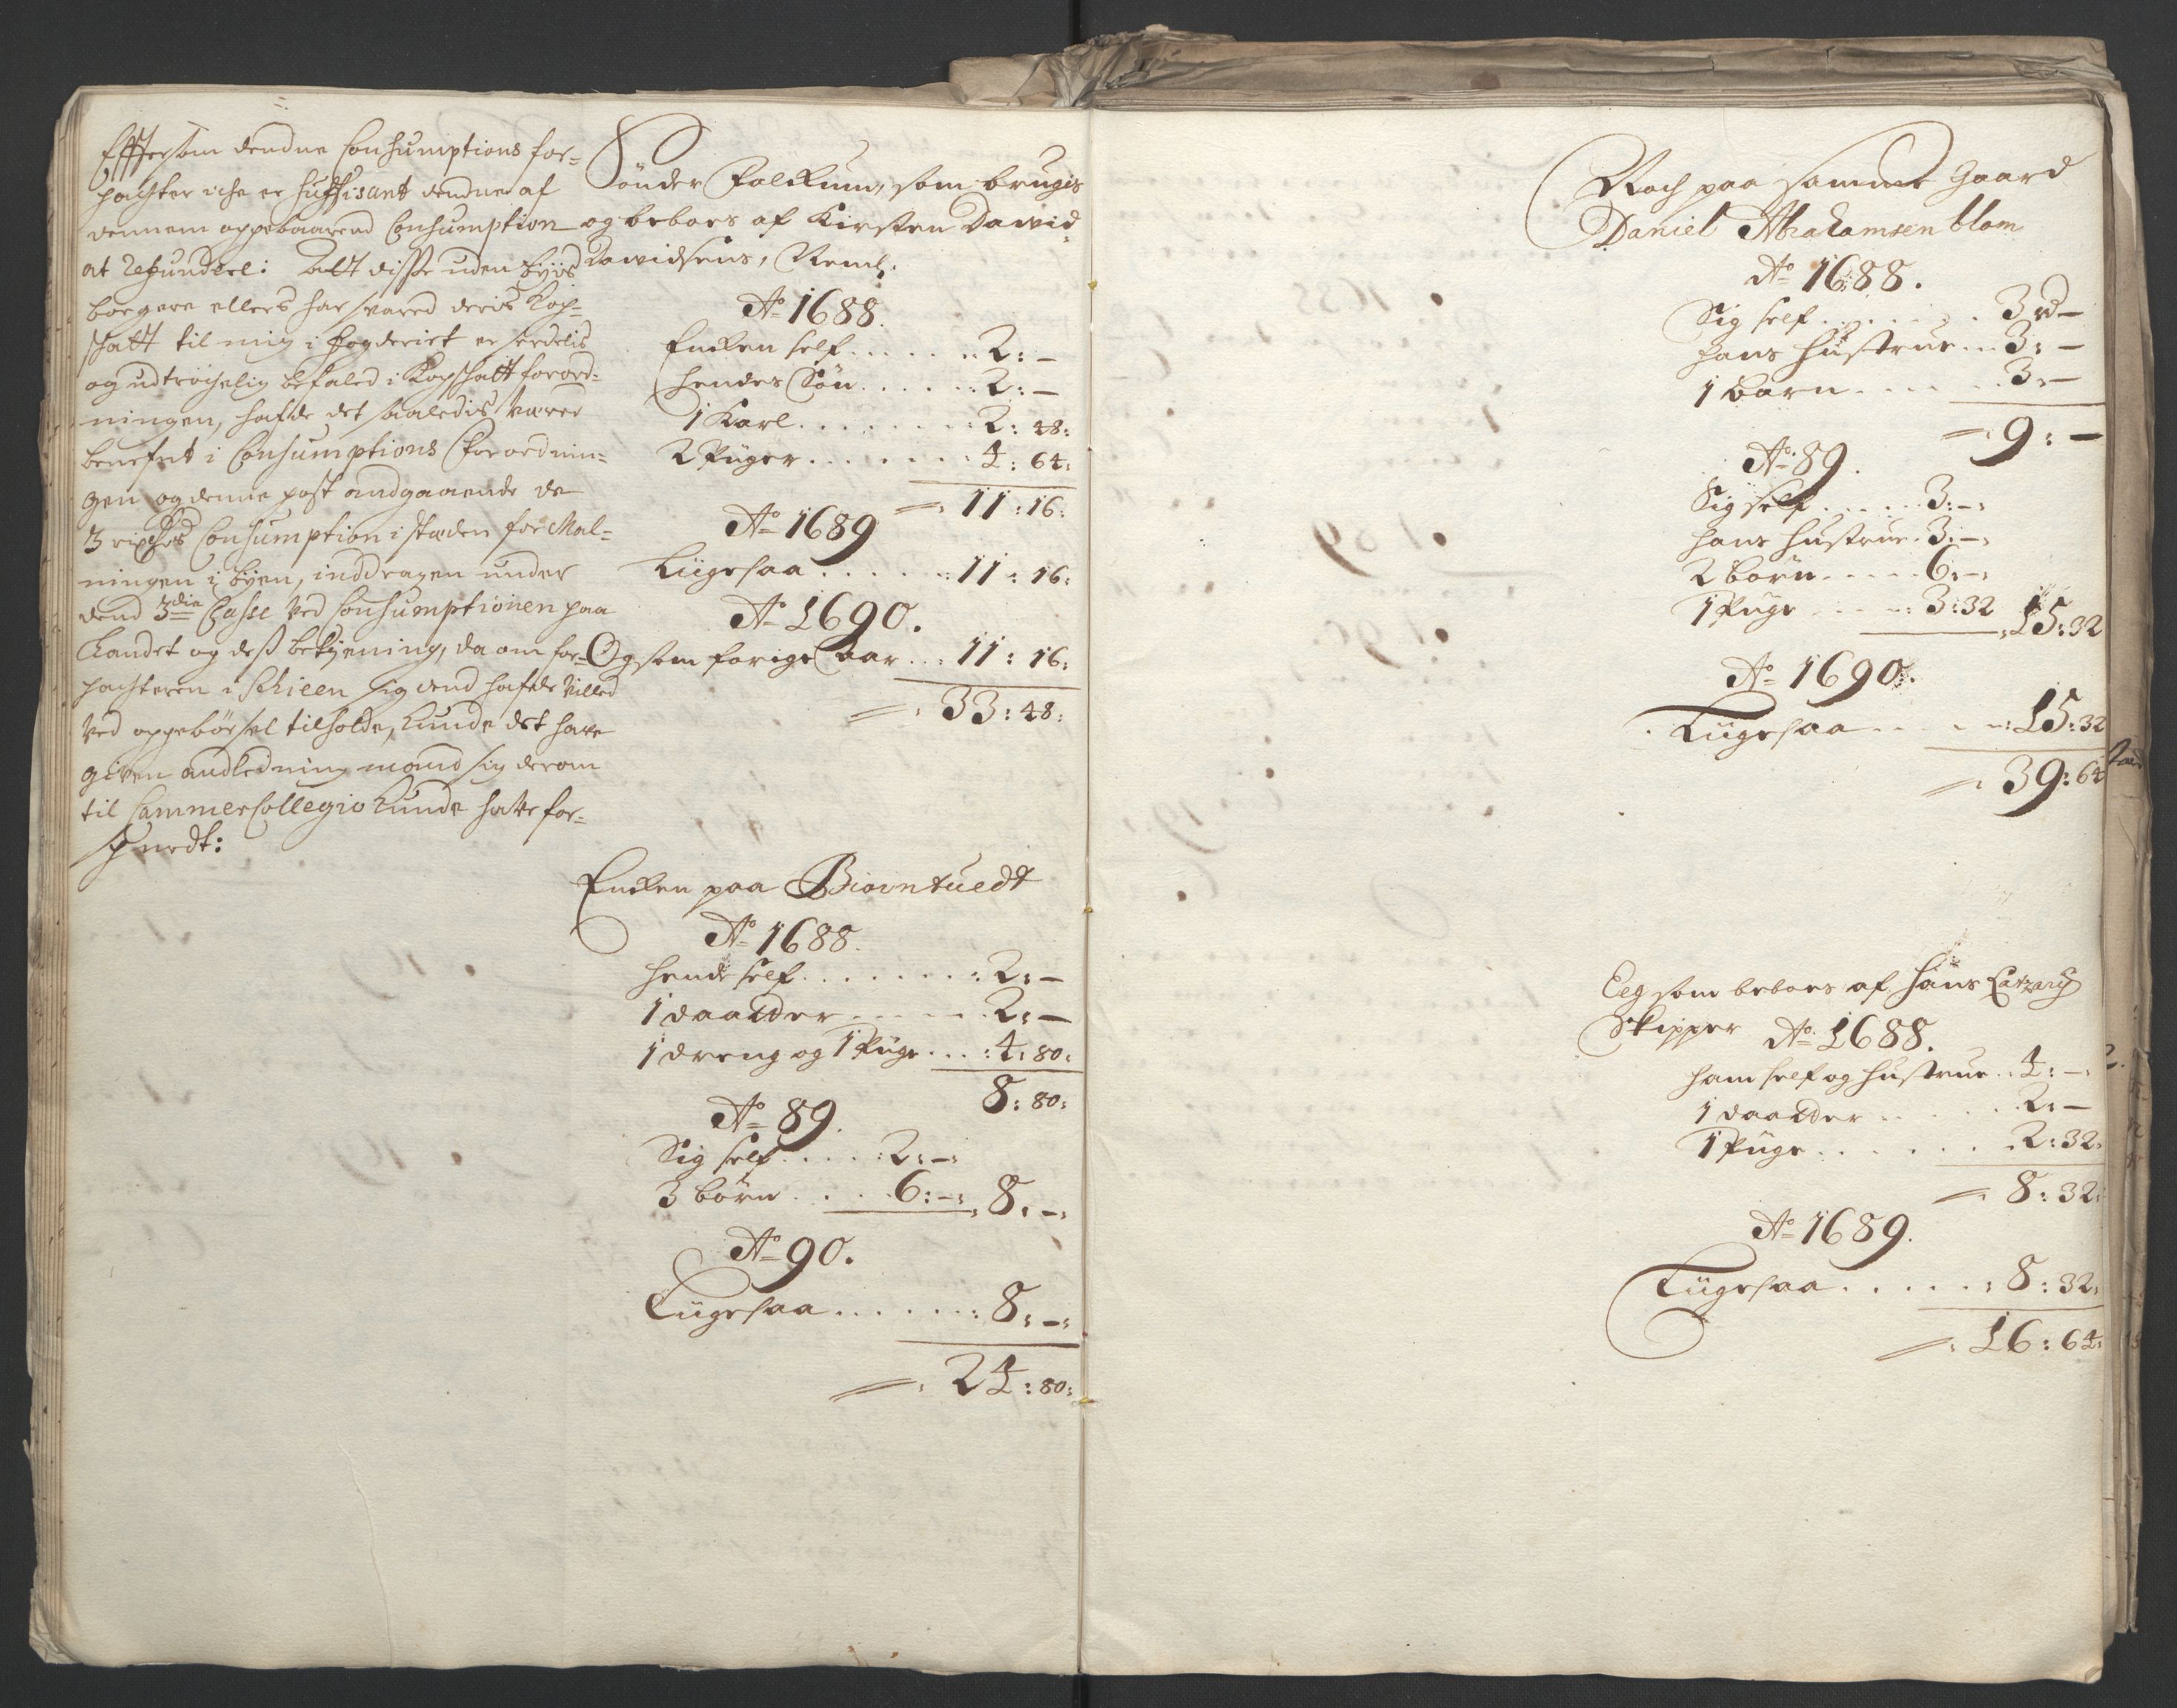 Effttersom dendne Consumptions for=
pachter iche er suffisant dendne af
dennem oppebaarend Consumption
at refundere: Alt disse uden byes
borgere ellers har svared deris Kop=
skatt til mig i fogderiet er serdelis
og udtrøchelig befaled i Kopskatt forord=
ningen, hafde det saaledis været
benefnt i Consumptions Forordnin=
gen og denne post andgaaende de
3 rixdrs Consumption i stæden for Mal=
ningen i byen, inddragen under
dend 3die Classe ved Consumptionen paa
Landet og dess betiening, da om for=
pachteren i Schieen sig dend hafde villed
ved oppebørsel tilholde, kunde det have
given andledning mand sig derom
til CammerCollegio kunde have for=
spurdt:
Sønder Falckum, som brugis
og beboes af Kirsten David
Davidsens, Neml.
Ao 1688.
Encken self . . . . . . 2: –
hendes Søn . . . . . . 2: –
1 Karl . . . . . . . . 2: 48:
2 Piiger . . . . . . . 4: 64:
11: 16:
Ao 1689
Liigesaa . . . . . . 11: 16:
Ao 1690.
Og som forige aar . . . 11: 16:
33: 48:
Encken paa Biørntuedt
Ao 1688.
hende self . . . . . . . 2: –
1 daatter . . . . . . 2: –
1 dreng og 1 Piige . . . 4: 80:
8: 80:
Ao 89.
Sig self . . . . . 2: –:
3 børn . . . . 6: –: 8: –:
Ao 90.
Liigesaa . . . . . . . 8: –:
24: 80:
Noch paa samme Gaard
Daniel Abrahamsen blom
Ao 1688.
Sig self . . . . . . . 3 rd –
hans hustrue . . . 3: –
1 barn . . . . . . 3: –
9: –
Ao 89.
Sig self . . . . . 3: –:
hans hustrue . 3: –:
2 børn . . . . . 6: –:
1 Piige . . . . . 3: 32 15: 32
Ao 1690.
Liigesaa . . . . . 15: 32
39: 64
Eeg som beboes af hans
Skipper Ao 1688.
ham self og hustrue . . 4: –:
1 daatter . . . . . . 2: –
1 Piige . . . . . . . 2: 32:
8: 32:
Ao 1689.
Liigesaa . . . . . . 8: 32:
16: 64: